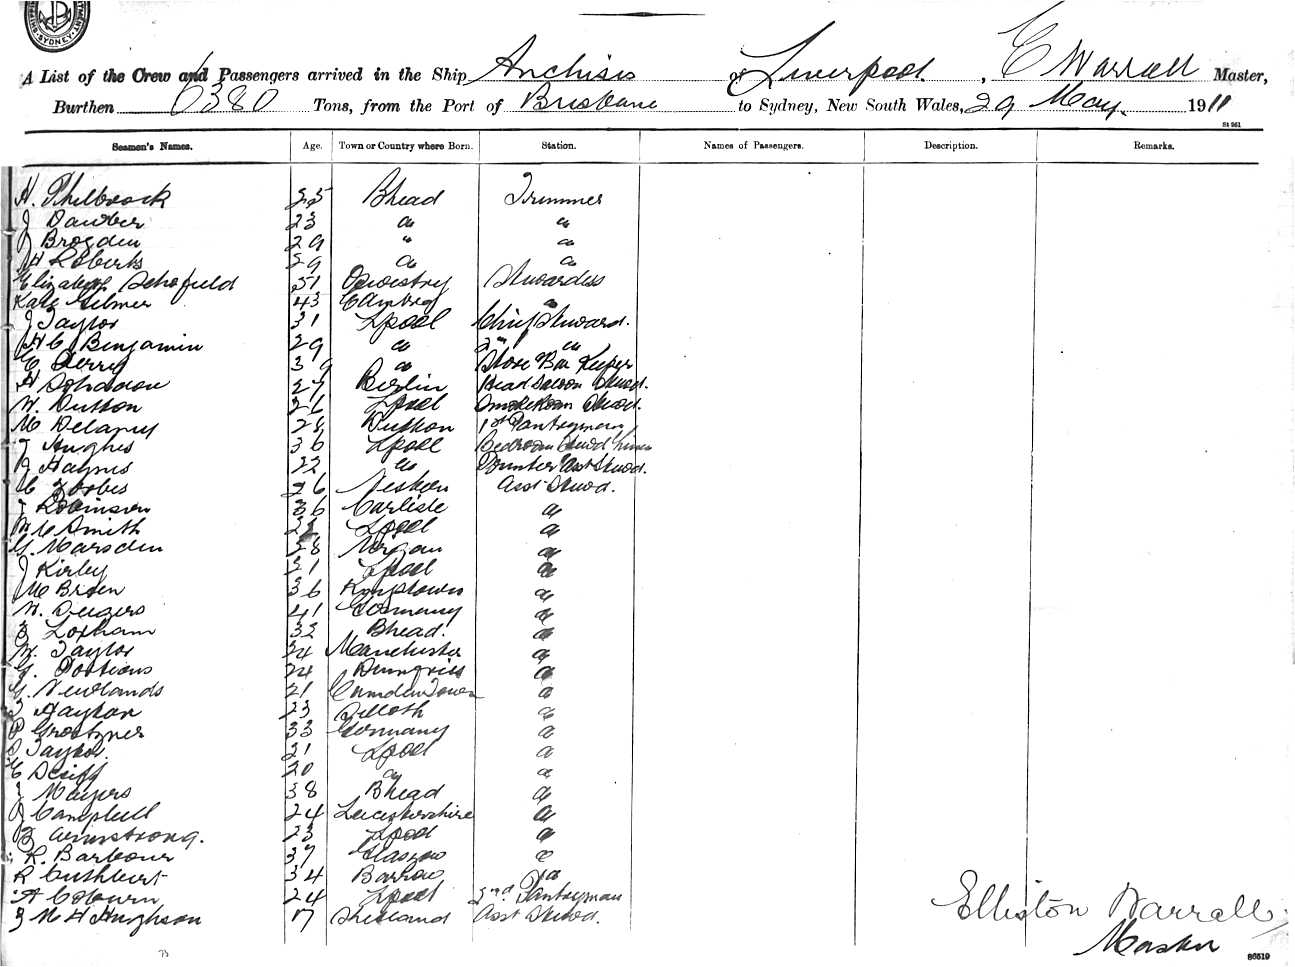 SYDNEY
A List of the Crew and Passengers arrived in the Ship Anchises of Liverpool, E Warrall Master,
Burthen 6380 Tons, from the Port of Brisbane to Sydney, New South Wales, 29 May 1911
St 261
Seamen's Names. Age. Town or Country where Born. Station. Names of Passengers. Description. Remarks.
H. Philbrock 25 Bhead Trimmer
J Dauber 23 " "
J Brogden 29 " "
J H Roberts 29 " "
Elizabeth Schofield 51 Oswestry Stewardess
Kate Gilmer 43 "
J Taylor 31 Lpool Chief Steward.
H C Benjamin 29 " 2nd "
C Derry 39 " Store & Bar Keeper
H 27 Berlin Head Saloon Stewd.
W. Dutton 26 Lpool Smoke Room Stewd.
M Delany 28 Dutton 1st Pantryman
J Hughes 36 Lpool Bedroom Stewd
J Haynes 22 " Asst Stewd.
C Forbes 26 Neston Asst Stewd.
J Robinson 36 Carlisle "
W C Smith Lpool "
G. Marsden 28 Wigan "
J Kirby 31 Lpool "
M Brien 36 Kingstown "
W. 41 Germany "
J Loxham 32 Bhead. "
W. Taylor 24 Manchester "
G. Porteous 24 Dumfries "
G. Newlands 21 Camden Town "
J 23 Silloth "
P 33 Germany "
J Taylor. 21 Lpool "
E 20 " "
J Mayers 38 Bhead "
J Campbell 24 Leicestershire "
J Armstrong. 23 Lpool "
R. Barbour 37 Glasgow "
R Cuthbert 34 Barrow "
A Coburn 24 Lpool 2nd Pantryman
J M H Hughson 17 Shetland Asst Stewd.
Elliston Warrall
Master
86519